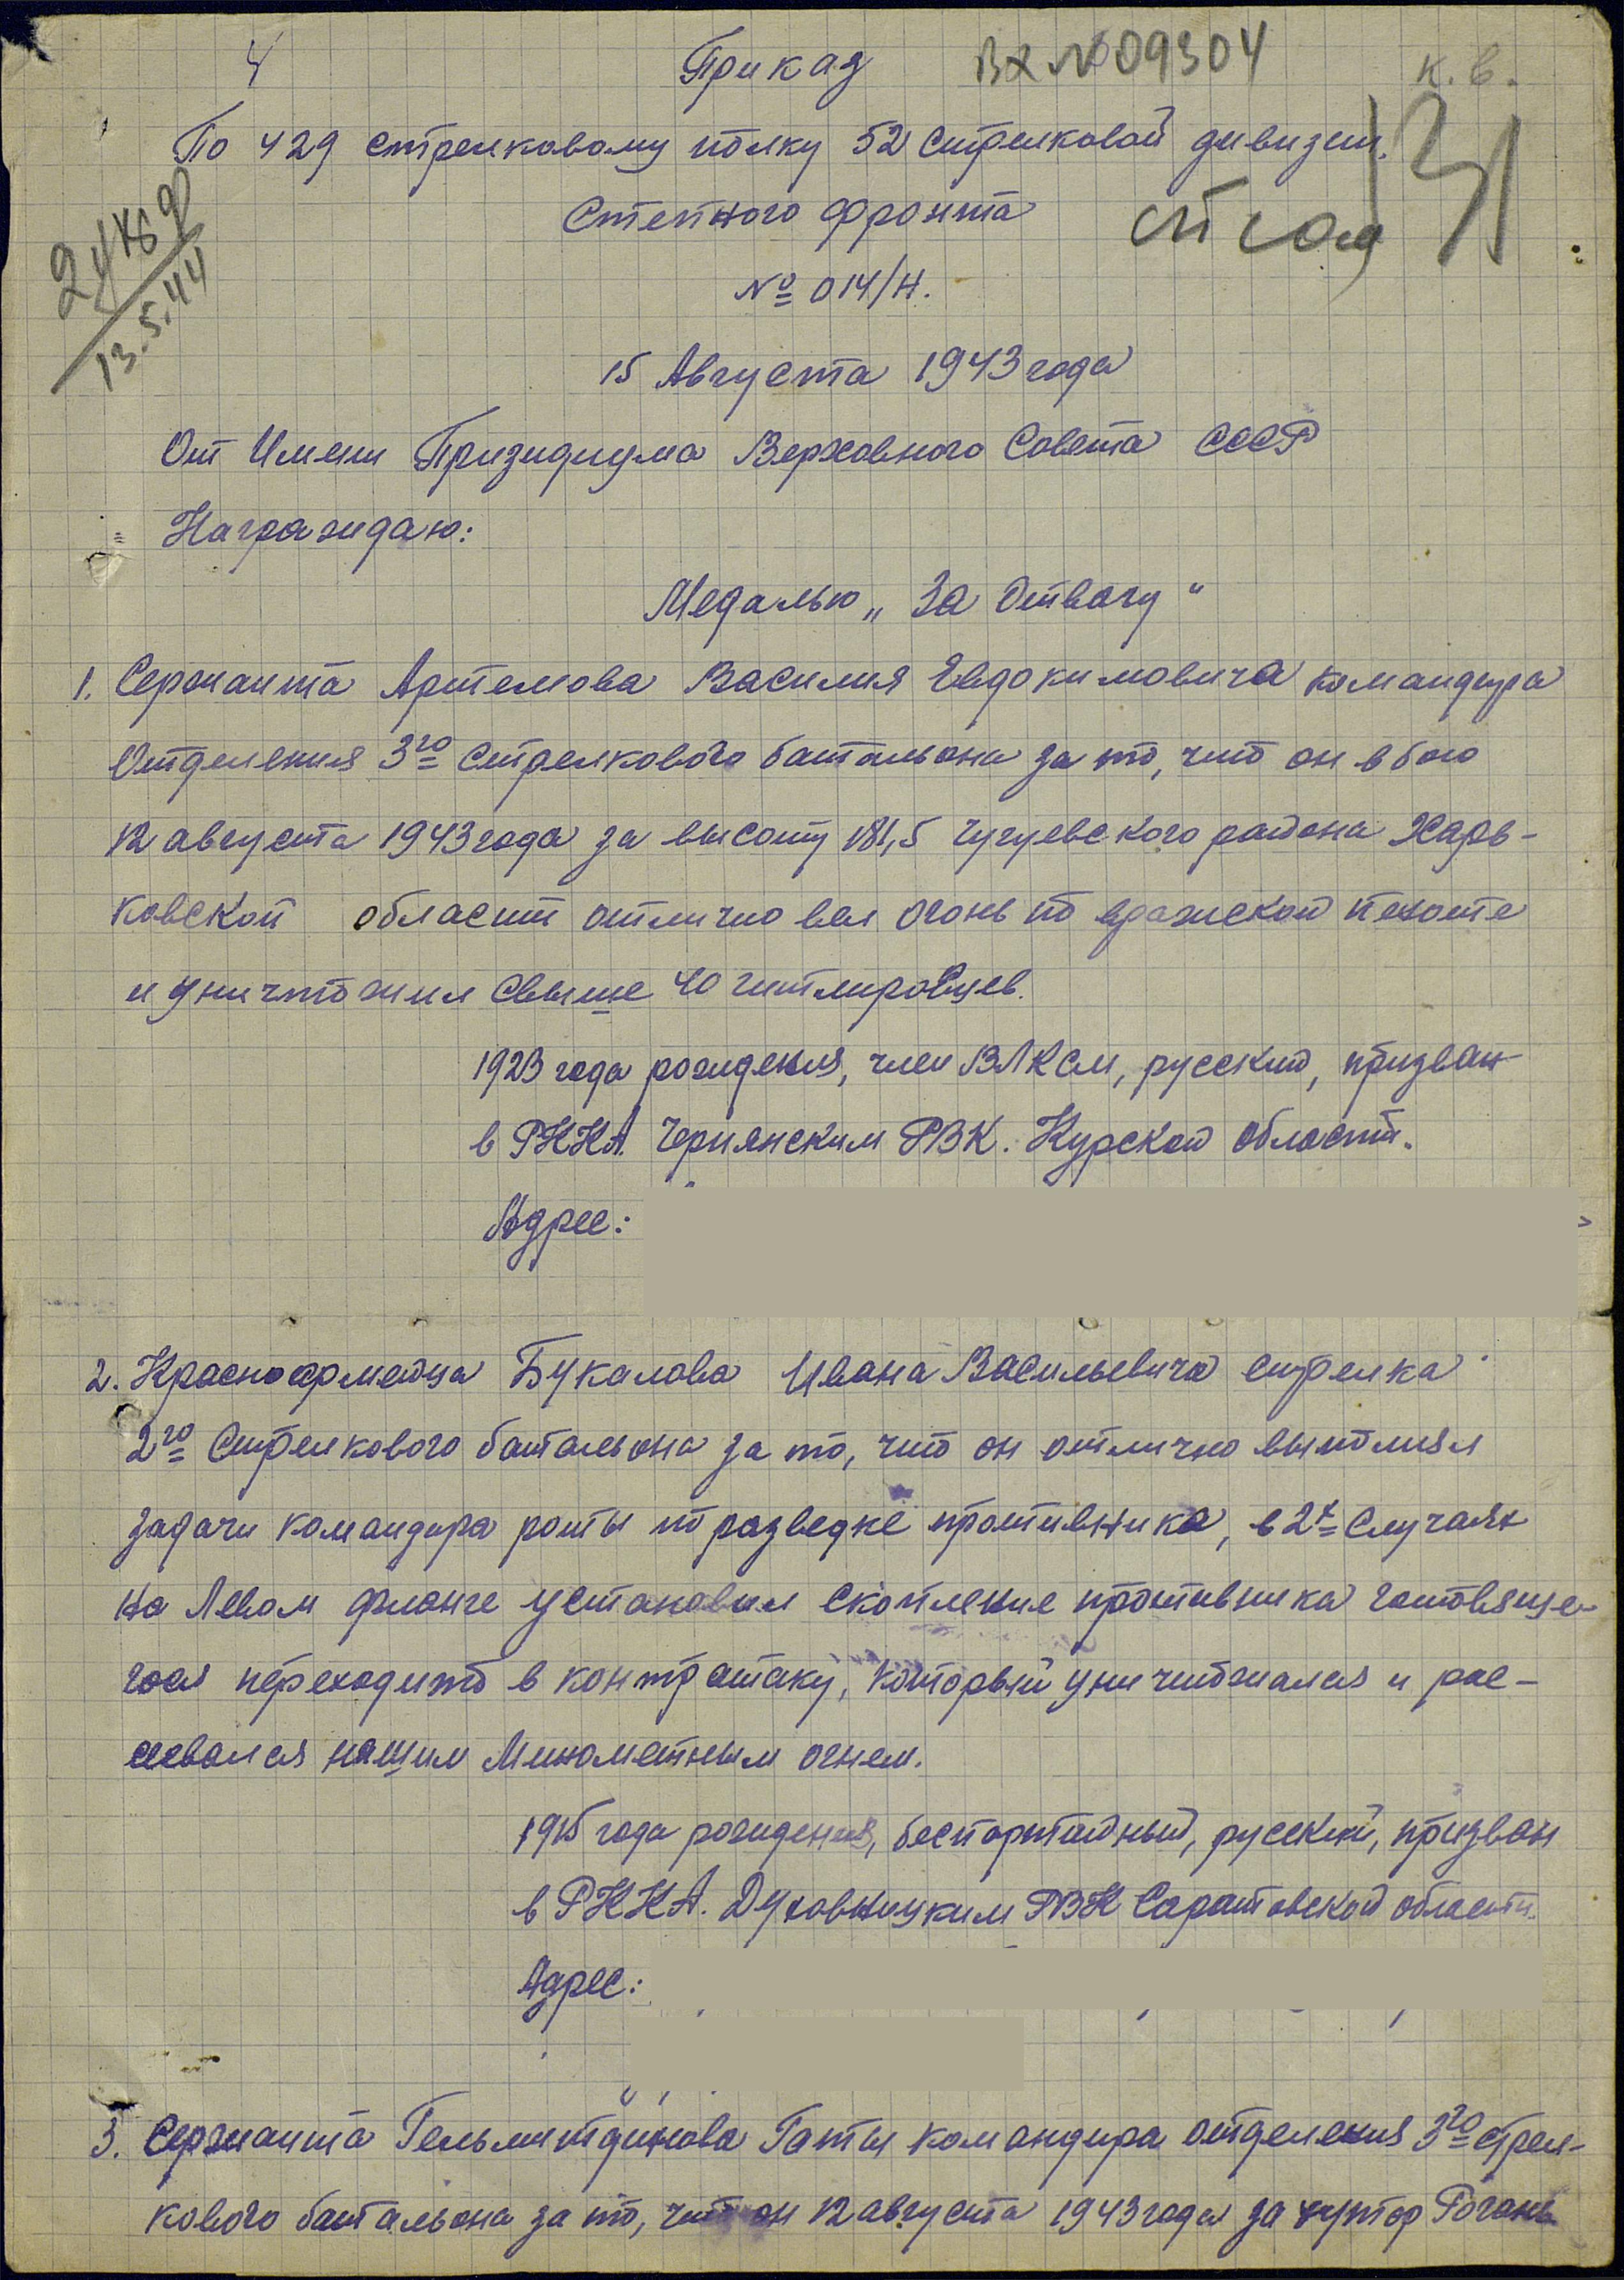 4
Приказ
Вх №09304
к. в.
По 429 стрелковому полку 52 стрелковой дивизии.
Степного фронта
№ 014/Н.
13.5.44
15 Августа 1943 года
От Имени Призидиума Верховного Совета СССР
Награждаю:
Медалью „За Отвагу"
1. Сержанта Артемова Василия Евдокимовича командира
Отделения 3го Стрелкового батальона за то, что он в бою
12 августа 1943 года за высоту 181,5 Чугуевского района Харь-
ковской области отлично вел огонь по вражеской пехоте
и уничтожил свыше 40 гитлировцев.
1923 года рождения, член ВЛКСМ, русский, призван
в РККА Чернянским РВК. Курской области.
Адрес:
2. Красноармейца Букалова Ивана Васильевича стрелка
2го Стрелкового батальона за то, что он отлично выполнял
задачи командира роты по разведке противника, в 2х случаях
на Левом фланге установил скопление противника готовяще-
гося переходить в контратаку, который уничтожался и рас-
сеевался нашим Минометным огнем.
1915 года рождения, беспартийный, русский, призван
в РККА. Духовницким РВК Саратовской области.
Адрес:
3. Сержанта Гельмитдинова Гаты командира отделения 3го стрел-
кового батальона за то, что он 12 августа 1943 года за хутор Рогань